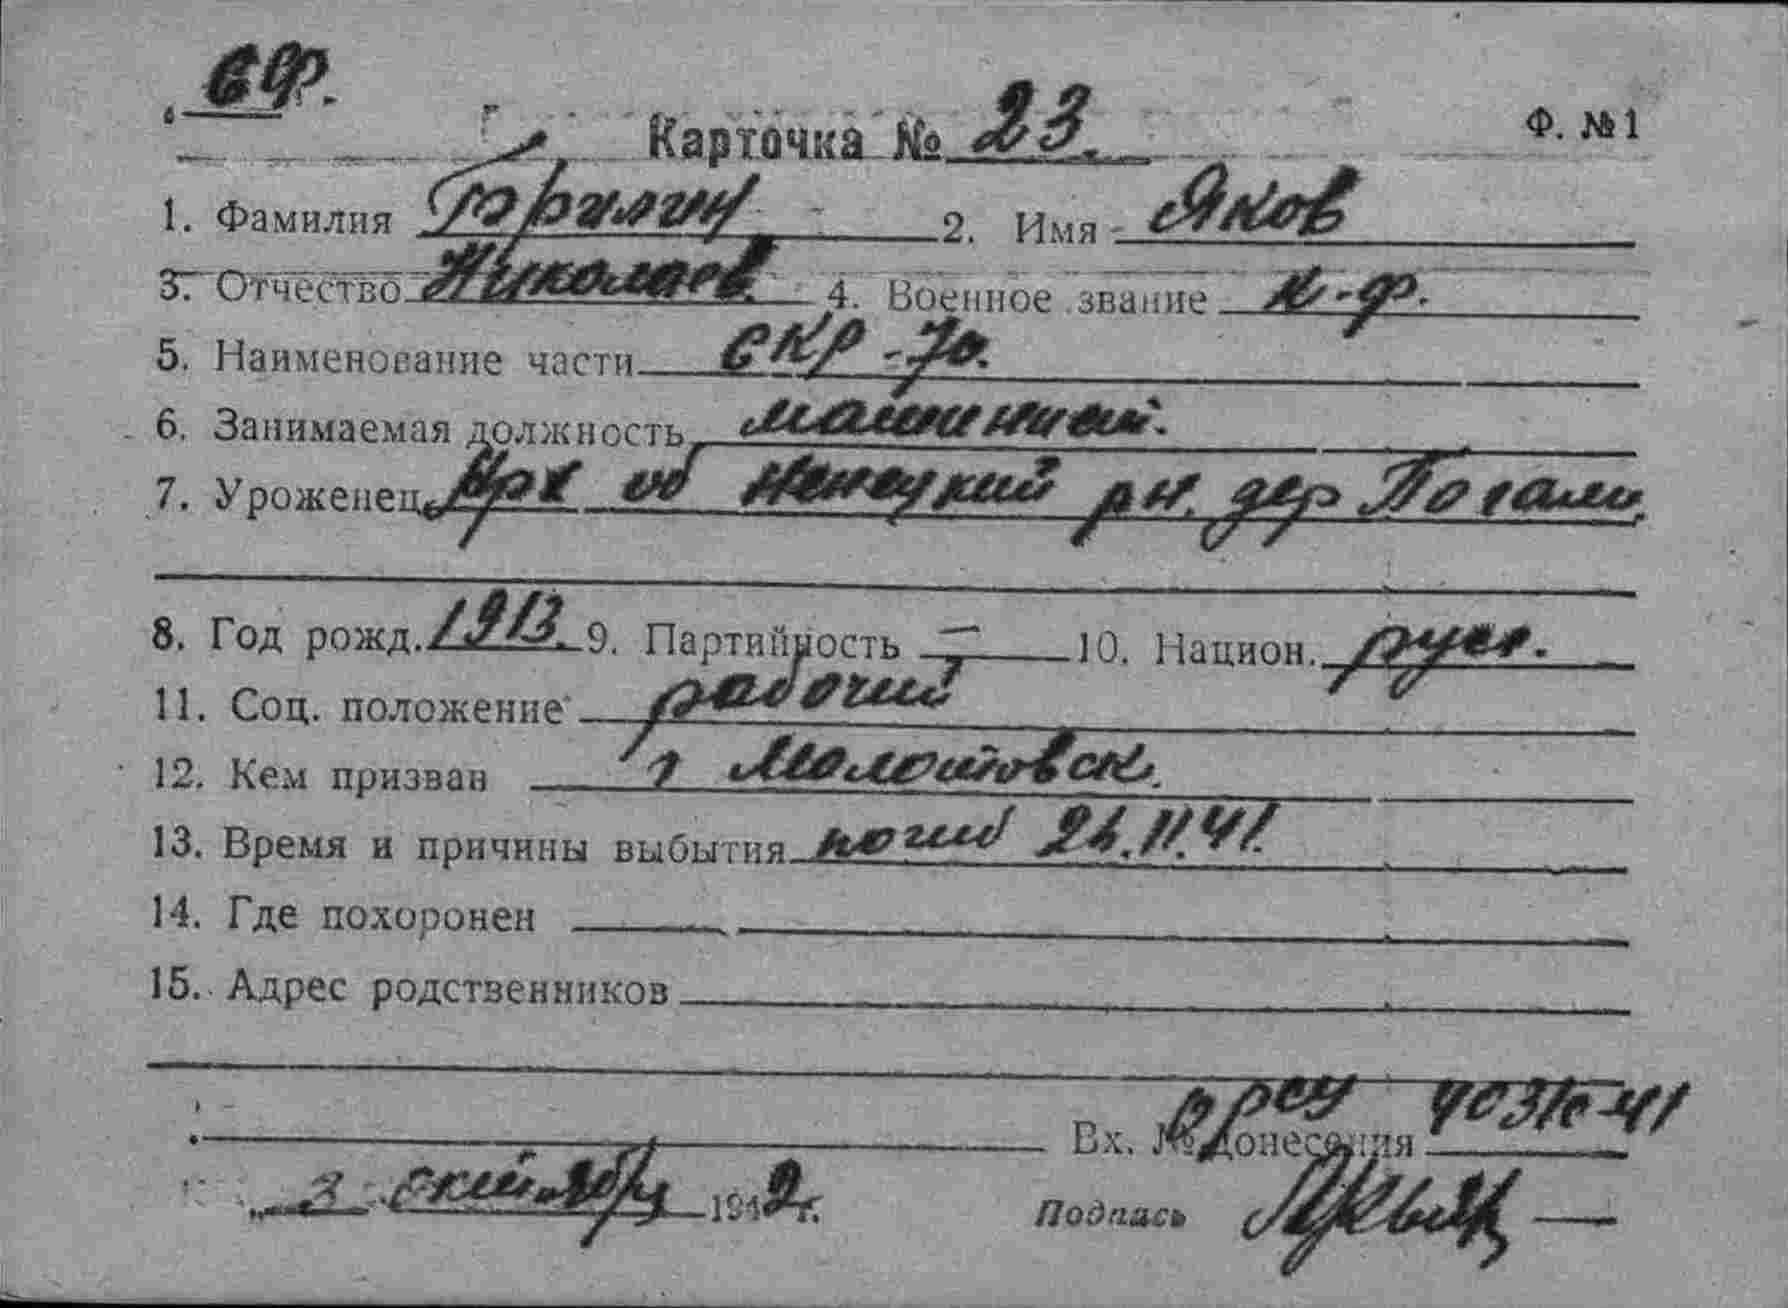 СФ.
Карточка № 23. Ф. № 1
1. Фамилия 2. Имя Яков
3. Отчество Николаев. 4. Военное звание к-ф.
5. Наименование части СКР-70.
6. Занимаемая должность машинист.
7. Уроженец Арх об Ненецкий рн. дер
8. Год рожд. 1913. 9. Партийность — 10. Национ. русс.
11. Соц. положение рабочий
12. Кем призван г Молотовск.
13. Время и причины выбытия погиб 24.11.41.
14. Где похоронен
15. Адрес родственников
Вх. № донесения
„ 3 октября 1942 г. Подпись